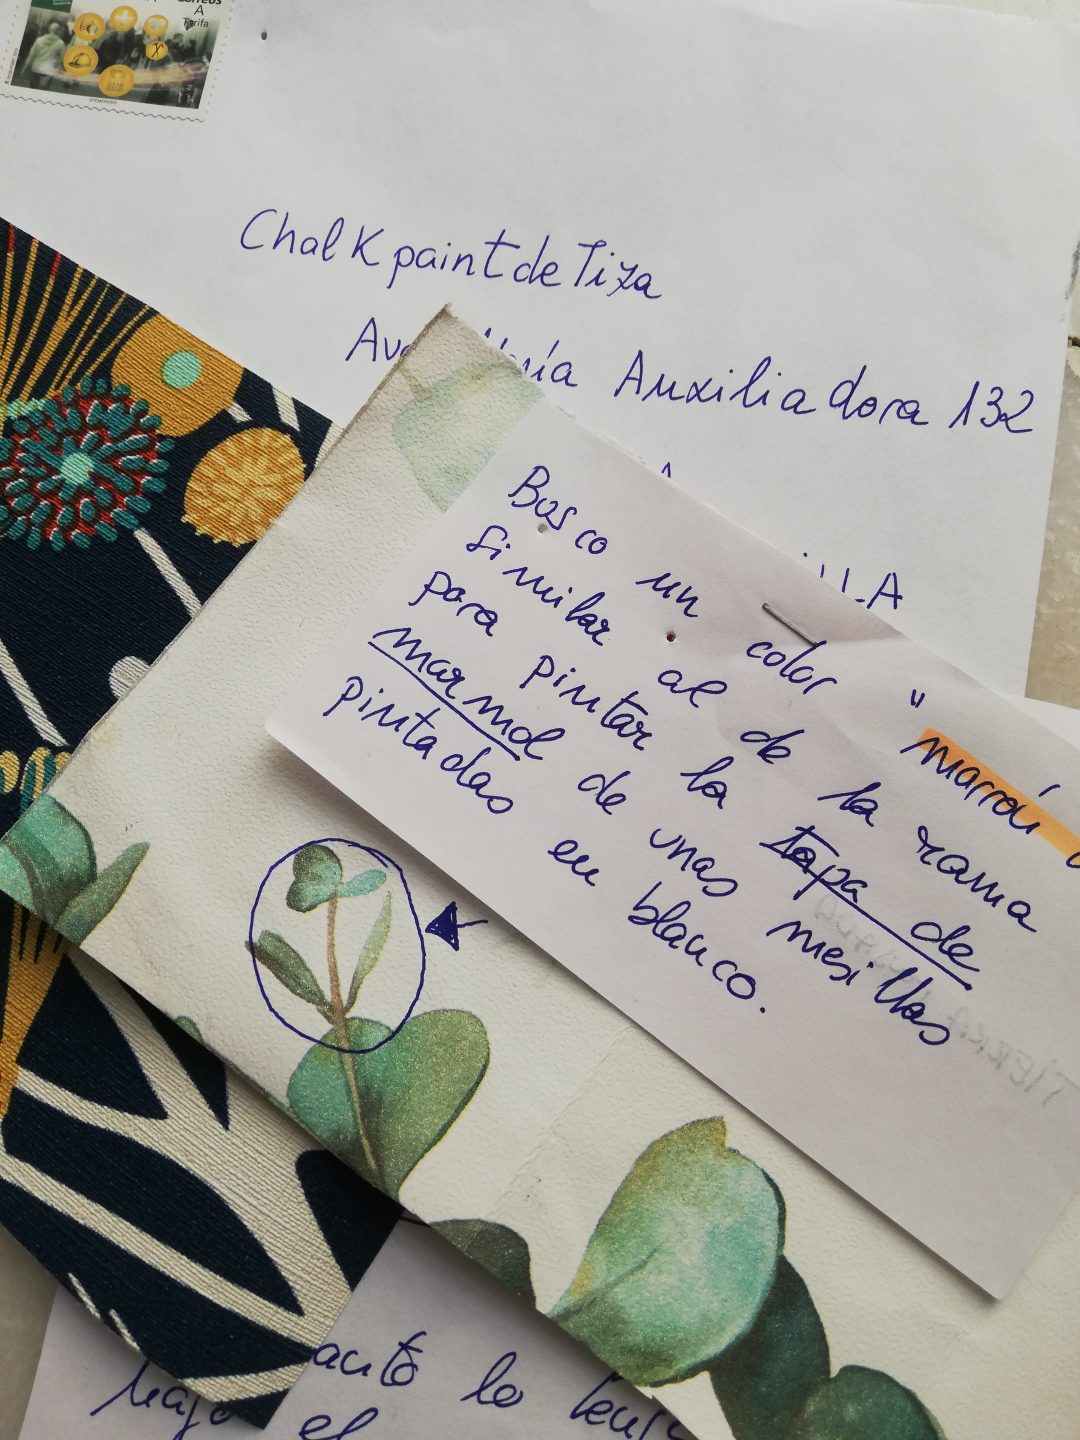 Correos
A
Tarifa
Chalk paint de Tiza
Auxiliadora 132
Busco un color "marrón
similar al de la rama
para pintar la tapa de
marmol de unas mesillas
pintadas en blanco.
lo
bajo el